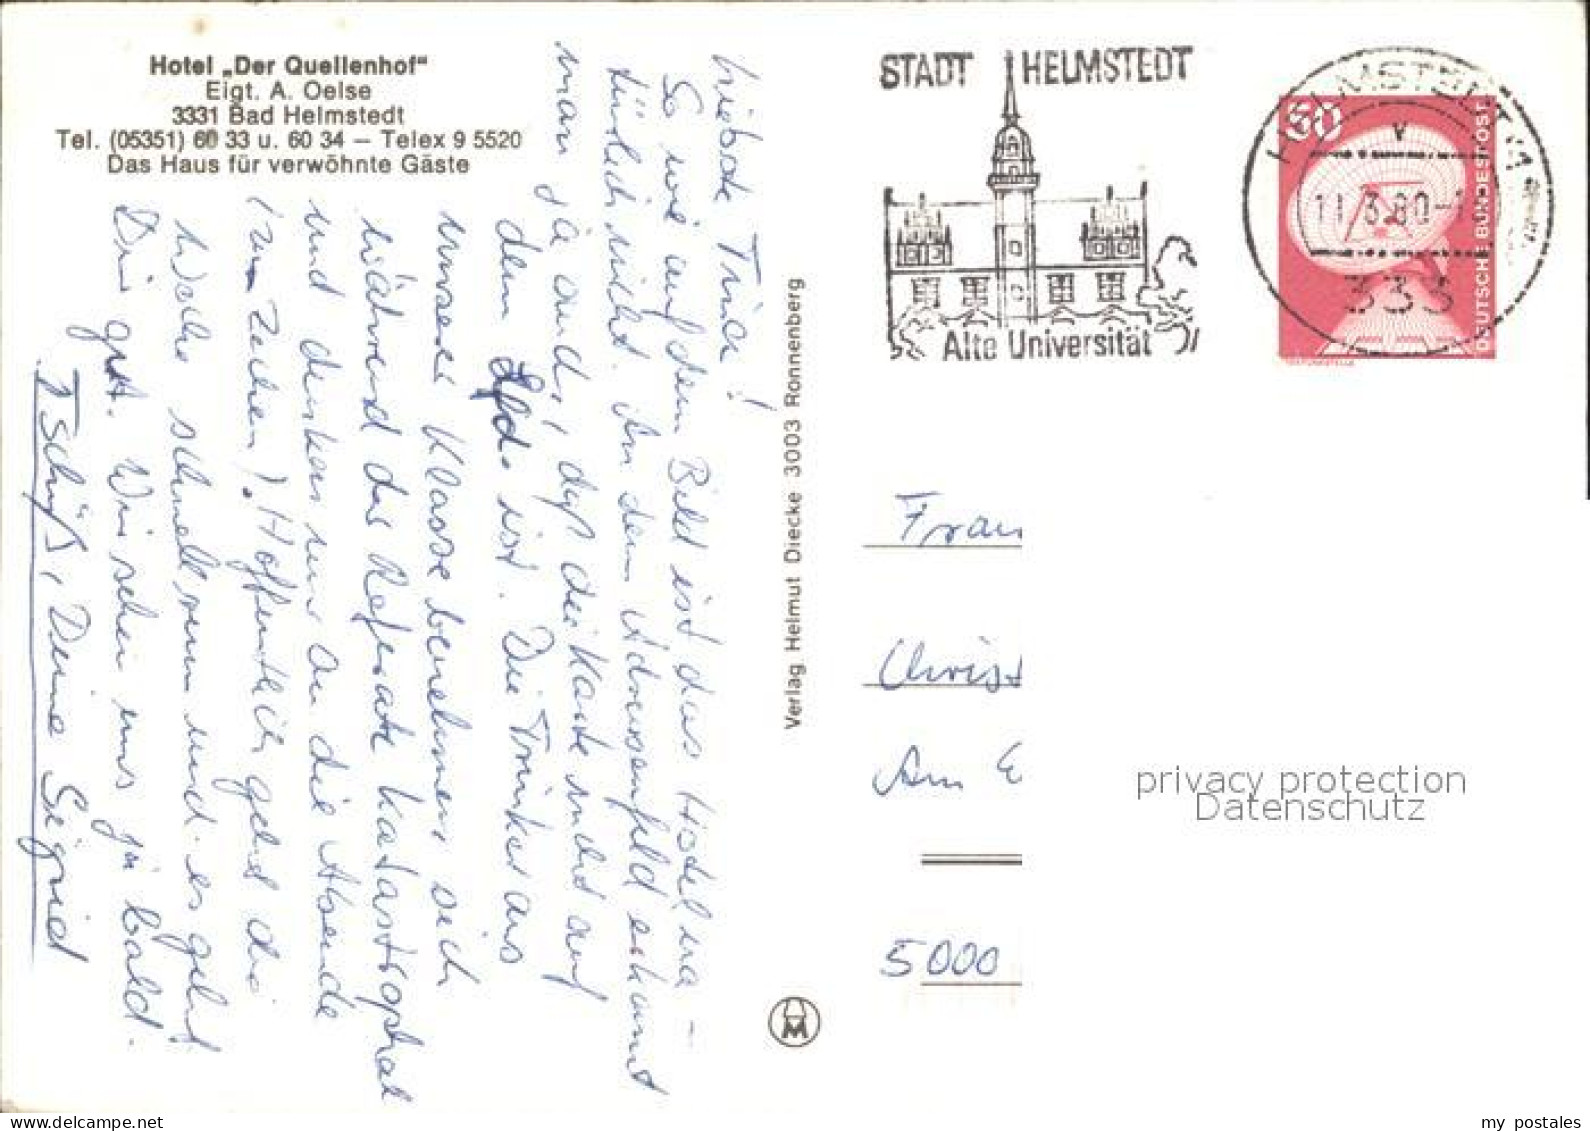 Hotel „Der Quellenhof“
Eigt. A. Oelse
3331 Bad Helmstedt
Tel. (05351) 60 33 u. 60 34 — Telex 9 5520
Das Haus für verwöhnte Gäste
Liebste Trudi!
So wie auf dem Bild ist das Hotel na-
türlich nicht. An dem Adressenfeld erkennt
man ja auch, daß die Karte nicht auf
dem ist. Die Trinker aus
unserer Klasse benehmen sich
während der Referate katastrophal
und denken nur an die Abende
(zum Zechen). Hoffentlich geht die
Woche schnell rum und es geht
Dir gut. Wir sehen uns ja bald.
Tschüß, Deine Sigrid
Verlag Helmut Diecke 3003 Ronnenberg
M
STADT HELMSTEDT
Alte Universität
HELMSTEDT 1
v
11.3.80-1
333
60
DEUTSCHE BUNDESPOST
Frau
Christ
Am E
5000
privacy protection
Datenschutz
my postales